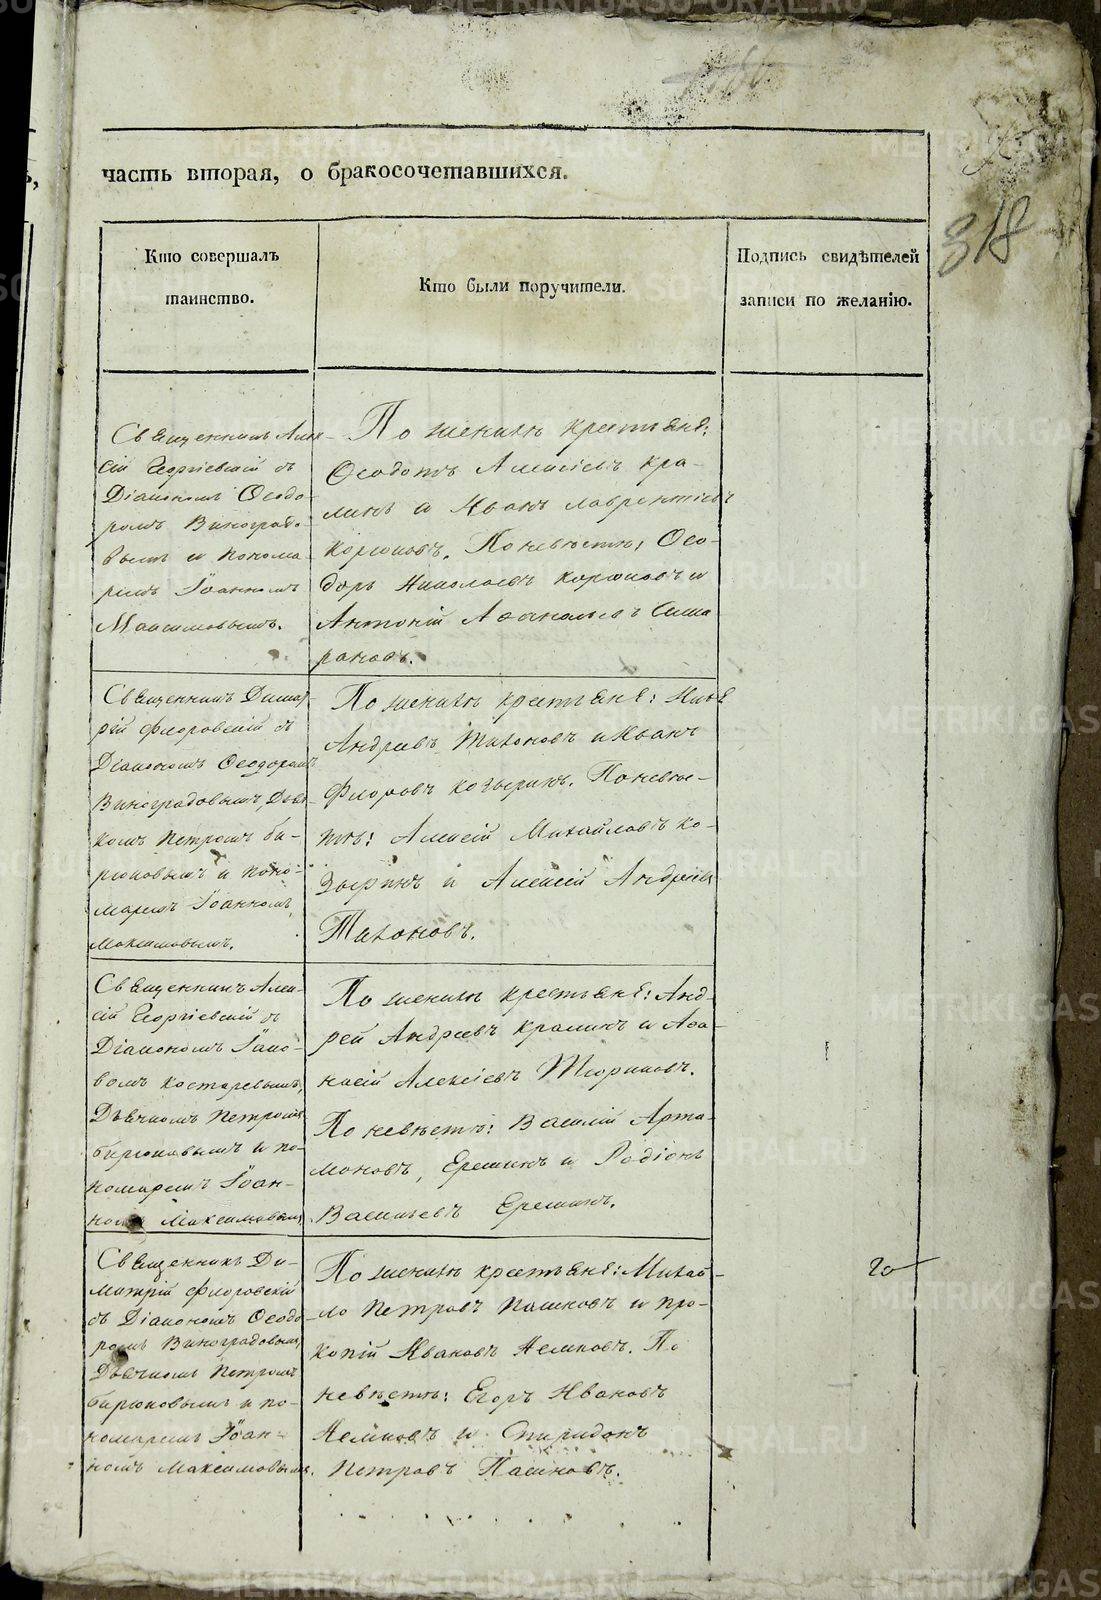 часть вторая, о бракосочетавшихся.
318
Кто совершалъ
таинство.
Кто были поручители.
Подпись свидѣтелей
записи по желанію.
Священникъ Алек-
сій Георгіевскій съ
Діакономъ Ѳеодо-
ромъ Виноградо-
вымъ и понома-
ремъ Іоанномъ
Максимовымъ.
По женихѣ крестьяне:
Ѳеодотъ Алексіевъ Кра-
линъ и Иванъ Лаврентіевъ
Корюковъ. По невѣстѣ: Ѳео-
доръ Николаевъ Корюковъ и
Антоній Аѳанасьевъ
Священникъ Димит-
рій Флоровскій съ
Діакономъ Ѳеодоромъ
Виноградовымъ, Дьяч-
комъ Петромъ Би-
рюковымъ и поно-
маремъ Іоанномъ
Максимовымъ.
По женихѣ крестьяне:
Андреевъ Тихоновъ и Иванъ
Флоровъ Козыринъ. По невѣс-
тѣ: Алексій Михайловъ Ко-
зыринъ и Алексій Андреевъ
Тихоновъ.
Священникъ Алек-
сій Георгіевскій съ
Діакономъ Іако-
вомъ Костаревымъ,
Дьячкомъ Петромъ
Бирюковымъ и по-
номаремъ Іоан-
номъ Максимовымъ
По женихѣ крестьяне: Анд-
рей Андреевъ Кралинъ и Аѳа-
насій Алексіевъ Тюриковъ.
По невѣстѣ: Василій Арта-
моновъ, Ереминъ и Родіонъ
Васильевъ Ереминъ.
Священникъ Ди-
митрій Флоровскій
съ Діакономъ Ѳеодо-
ромъ Виноградовымъ,
Дьячкомъ Петромъ
Бирюковымъ и по-
номаремъ Іоан-
номъ Максимовымъ.
По женихѣ крестьяне: Михай-
ло Петровъ Пашковъ и Про-
копій Ивановъ По
невѣстѣ: Егоръ Ивановъ
и Спиридонъ
Петровъ Пашковъ.
METRIKI.GASO-URAL.RU